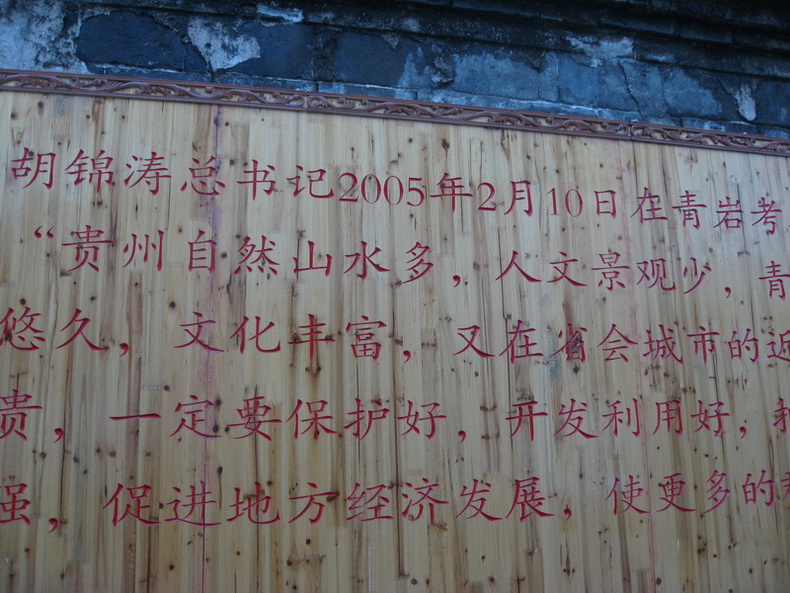 胡锦涛总书记2005年2月10日在青岩考
“贵州自然山水多，人文景观少，青
悠久，文化丰富，又在省会城市的近
贵，一定要保护好，开发利用好，
强，促进地方经济发展，使更多的